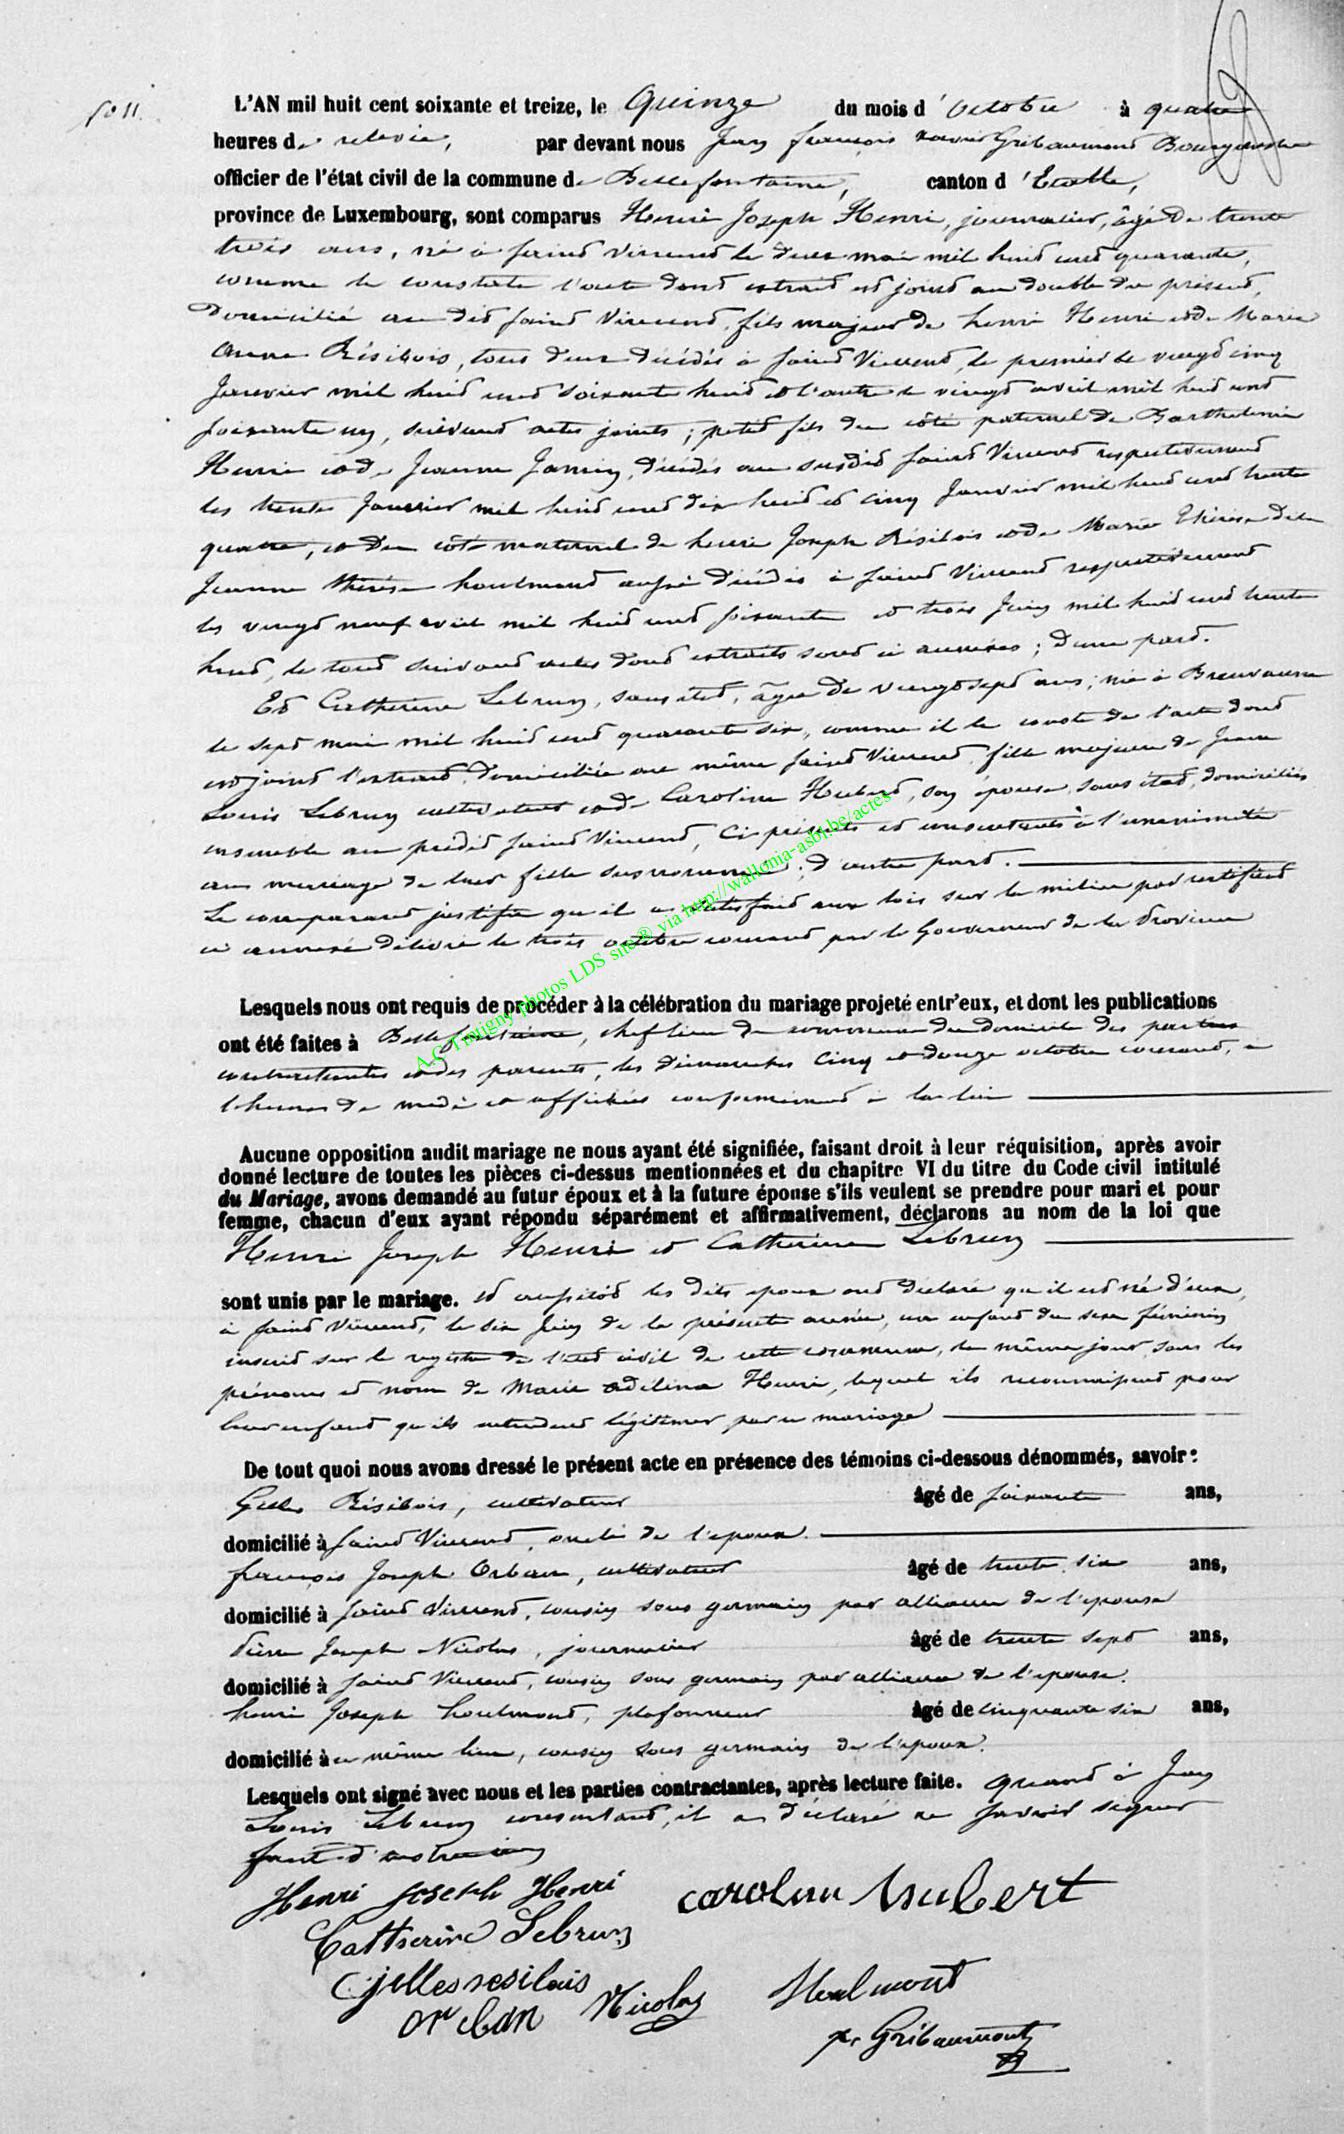 N° 11.
L'AN mil huit cent soixante et treize, le Quinze du mois d'octobre à quatre
heures de relevée, par devant nous Jean françois xavier Gribaumont Bourgmestre
officier de l'état civil de la commune de Bellefontaine, canton d'Etalle,
province de Luxembourg, sont comparus Henri Joseph Henri, journalier, âgé de trente
trois ans, né à saint Vincent le deux mai mil huit cent quarante,
comme le constate l'acte dont extrait est joint au double du présent,
Domicilié au dit saint Vincent, fils majeur de henri Henri et de Marie
Anne Résibois, tous deux décédés à saint Vincent, le premier le vingt cinq
Janvier mil huit cent soixante huit et l'autre le vingt avril mil huit cent
soixante un, suivant actes joints ; petit fils du côté paternel de Barthelemi
Henri et de Jeanne Jamin, décédés au susdit saint Vincent respectivement
les trente Janvier mil huit cent dix huit et cinq Janvier mil huit cent trente
quatre, et du côté maternel de henri Joseph Résibois et de Marie Thérèse dite
Jeanne thérèse houlmont aussi décédés à saint Vincent respectivement
les vingt neuf avril mil huit cent soixante et trois Juin mil huit cent trente
huit, le tout suivant actes dont extraits sont ci annexés ; d'une part.
Et Catherine Lebrun, sans état, âgée de vingt sept ans, née à Breuvanne
le sept mai mil huit cent quarante six, comme il le conste de l'acte dont
est joint l'extrait, domiciliée au même saint Vincent, fille majeure de Jean
Louis Lebrun cultivateur et de Caroline Hubert, son épouse, sans état, domiciliés
ensemble au prédit saint Vincent, ci présents et consentants à l'unanimité
au mariage de leur fille susnommée ; d'autre part.
Le comparant justifie qu'il a satisfait aux lois sur la milice par certificat
ci annexé délivré le trois octobre courant par le Gouverneur de la Province
Lesquels nous ont requis de procéder à la célébration du mariage projeté entr'eux, et dont les publications
ont été faites à Bellefontaine, chef lieu de commune du domicile des parties
contractantes et des parents, les dimanches cinq et douze octobre courant, à
l'heure de midi et affichées conformément à la loi
Aucune opposition audit mariage ne nous ayant été signifiée, faisant droit à leur réquisition, après avoir
donné lecture de toutes les pièces ci-dessus mentionnées et du chapitre VI du titre du Code civil intitulé
du Mariage, avons demandé au futur époux et à la future épouse s'ils veulent se prendre pour mari et pour
femme, chacun d'eux ayant répondu séparément et affirmativement, déclarons au nom de la loi que
Henri Joseph Henri et Catherine Lebrun
sont unis par le mariage. et aussitôt les dits époux ont déclaré qu'il est né d'eux,
à saint Vincent, le six Juin de la présente année, un enfant du sexe féminin
inscrit sur le registre de l'état civil de cette commune, le même jour, sous les
prénoms et nom de Marie Adelina Henri, lequel ils reconnaissent pour
leur enfant qu'ils entendent légitimer par ce mariage
De tout quoi nous avons dressé le présent acte en présence des témoins ci-dessous dénommés, savoir :
Gilles Résibois, cultivateur âgé de soixante ans,
domicilié à saint Vincent, oncle de l'époux.
françois Joseph Orban, cultivateur âgé de trente six ans,
domicilié à saint Vincent, cousin sous germain par alliance de l'épouse
Pierre Joseph Nicolas, journalier âgé de trente sept ans,
domicilié à saint Vincent, cousin sous germain par alliance de l'épouse.
henri Joseph houlmont, plafonneur âgé de cinquante six ans,
domicilié à ce même lieu, cousin sous germain de l'époux.
Lesquels ont signé avec nous et les parties contractantes, après lecture faite. Quant à Jean
Louis Lebrun consentant, il a déclaré ne savoir signer
faute d'instruction
Henri Joseph Henri Carolinn hubert
Catherine Lebrun
Gilles resibois
orban Nicolas Houlmont
Gribaumont
A.C Tintigny photos LDS site® via http://wallonia-asbl.be/actes